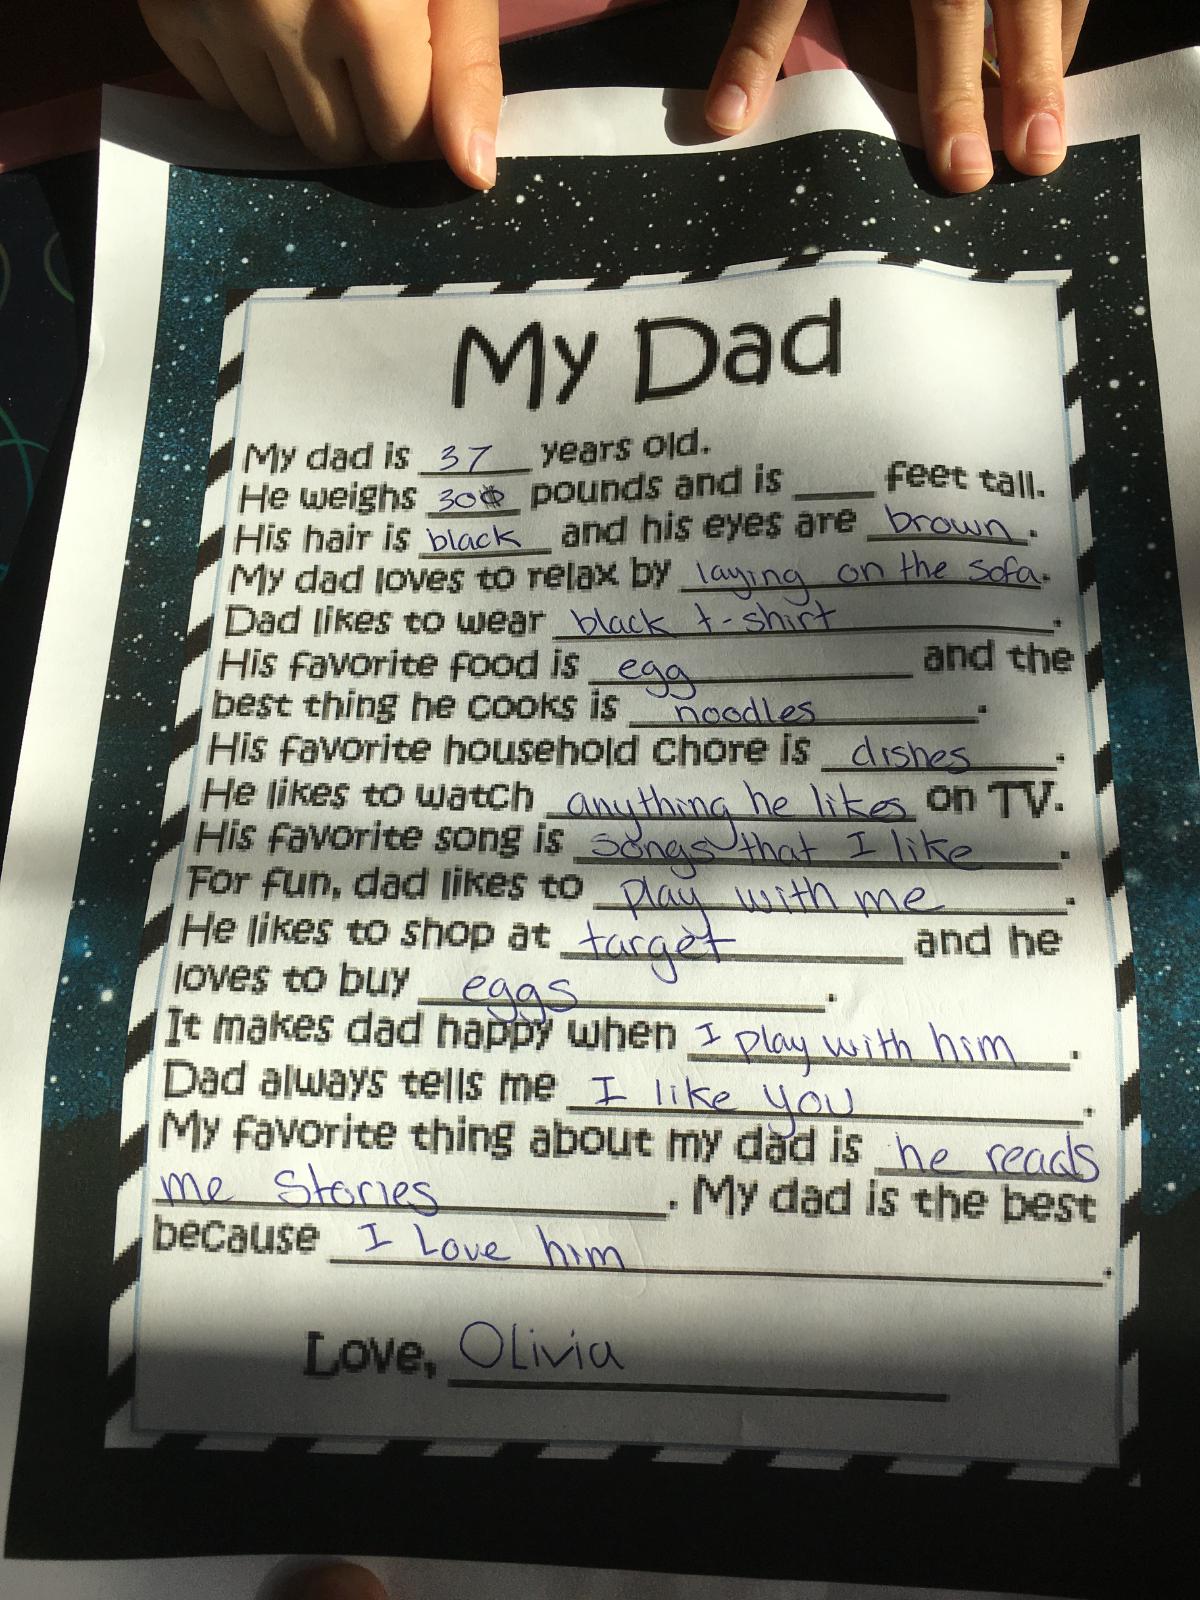 My Dad
My dad is 37 years old.
He weighs 300 pounds and is ____ feet tall.
His hair is black and his eyes are brown.
My dad loves to relax by laying on the sofa.
Dad likes to wear black t-shirt.
His favorite food is egg and the
best thing he cooks is noodles.
His favorite household chore is dishes.
He likes to watch anything he likes on TV.
His favorite song is songs that I like.
For fun, dad likes to play with me.
He likes to shop at target and he
loves to buy eggs.
It makes dad happy when I play with him.
Dad always tells me I like you.
My favorite thing about my dad is he reads
me stories. My dad is the best
because I love him.
Love, Olivia